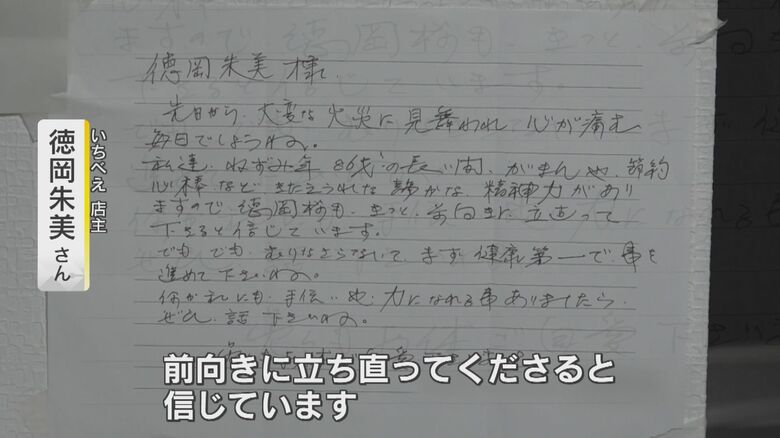 徳岡朱美様
先日から、大変な火災に見舞われ心が痛む
毎日でしょうね。
私達、ねずみ年86才の長い間、がまんや、節約
心棒などきたえられた静かな、精神力があり
ますので、徳岡様も、きっと、前向きに立直って
下さると信じています。
でも、でも、むりなさらないで、まず、健康第一で、事を
進めて下さいね。
何か私にも、手伝いや、力になれる事ありましたら、
ぜひ、話下さいね。
いちべえ 店主
徳岡朱美さん
前向きに立ち直ってくださると
信じています